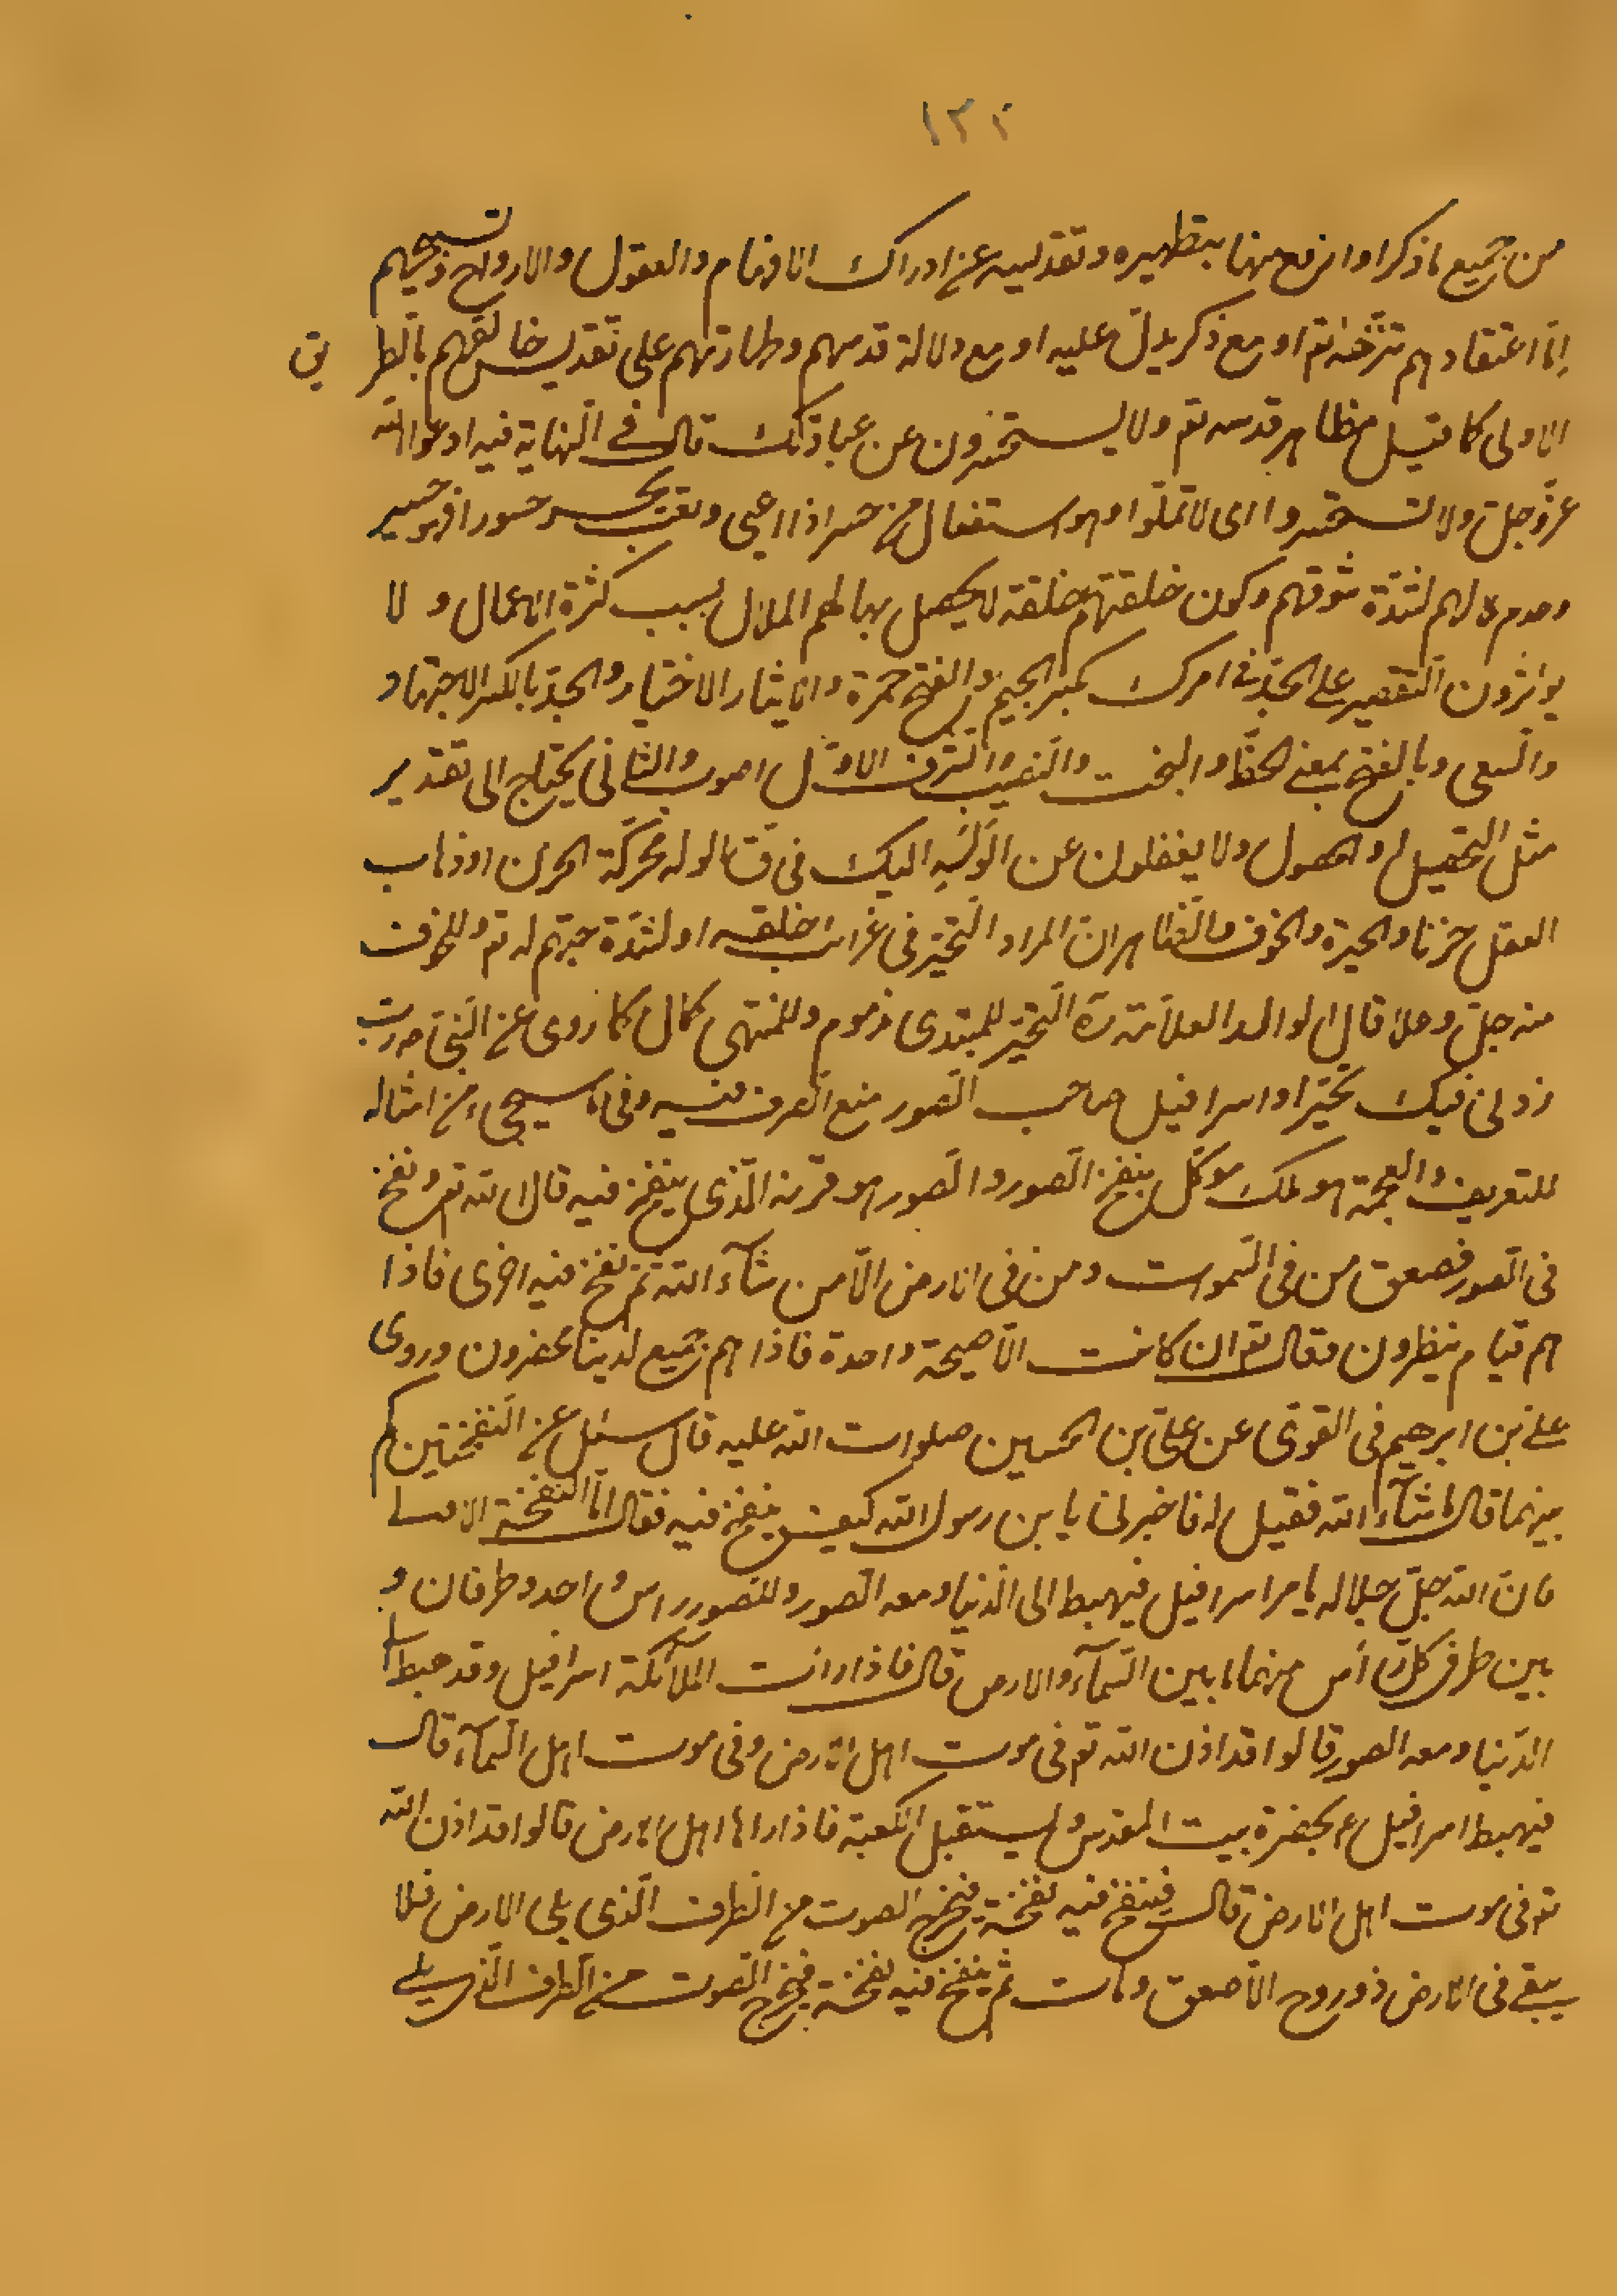 ١٣٠
من جميع ما ذكر او ارفع منها بتطهيره وتقديسه عن ادراك الاوهام والعقول والارواح وتسبيحهم
امّا اعتقادهم تنزّهه تع او مع ذكر يدلّ عليه او مع دلالة قدسهم وطهارتهم على تقديس خالقهم بالطريق
الاولى كما قيل مظاهر قدسه تع ولا يستحسرون عن عبادتك قال في النهاية فيه ادعوا الله
عزّ وجلّ ولا تستحسروا اى لا تملّوا وهو استفعال من حسر اذا اعيى وتعب يحسر حسورا فهو حسير
وعدم ملالهم لشدّة شوقهم وكون خلقتهم خلقة لا يحصل بها لهم الملال بسبب كثرة الاعمال ولا
يؤثرون التقصير على الجدّ في امرك بكسر الجيم والفتح والايثار الاختيار والجدّ بالكسر الاجتهاد
والسعى وبالفتح بمعنى الحظّ والبخت والنصيب والشرف الاوّل اصوب والثاني يحتاج الى تقدير
مثل التحصيل والحصول ولا يغفلون عن الوله اليك في ق الوله محرّكة الحزن او ذهاب
العقل حزنا والحيرة والخوف والظاهر انّ المراد التحيّر في غرائب خلقه او لشدّة حبّهم له تع وللخوف
منه جلّ وعلا قال الوالد العلّامة ره التحيّر للمبتدى مذموم وللمنتهى كمال كما روى عن النبي ص ربّ
زدنى فيك تحيّرا واسرافيل صاحب الصور منع الصرف فيه وفي ما سيجىء من امثاله
للتعريف والعجمة هو ملك موكّل بنفخ الصور والصور هو قرنه الّذى ينفخ فيه قال الله تعه ونفخ
في الصور فصعق من في السموات ومن في الارض الّا من شآء الله ثمّ نفخ فيه اخرى فاذا
هم قيام ينظرون وقال تع ان كانت الّا صيحة واحدة فاذا هم جميع لدينا محضرون وروى
على بن ابرهيم في القوى عن علىّ بن الحسين صلوات الله عليه قال سئل عن النفختين كم
بينهما قال ما شآء الله فقيل له فاخبرنى يا بن رسول الله كيف ينفخ فيه فقال امّا النفخة الاولى
فانّ الله جلّ جلاله يامر اسرافيل فيهبط الى الدّنيا ومعه الصور وللصور راس واحد وطرفان و
بين طرف كلّ راس منهما ما بين السّمآء والارض قال فاذا رات الملائكة اسرافيل وقد هبط الى
الدّنيا ومعه الصور قالوا قد اذن الله تع في موت اهل الارض وفي موت اهل السمآء قال
فيهبط اسرافيل ع بحضرة بيت المقدس ويستقبل الكعبة فاذا راها اهل الارض قالوا قد اذن الله
تع في موت اهل الارض قال فينفخ فيه نفخة فيخرج الصوت من الطرف الّذى يلى الارض فلا
يبقى في الارض ذو روح الّا صعق ومات ثم ينفخ فيه نفخة فيخرج الصوت من الطرف الّذى يلى